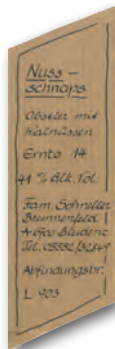 Nuss -
schnaps
Obstler mit
Walnüssen
Ernte 14
41 % Alk. Vol.
Fam. Schneller
Brunnenfeld 1
A 6700 Bludenz
Tel. 05552/
Abfindungsbr.
L 903